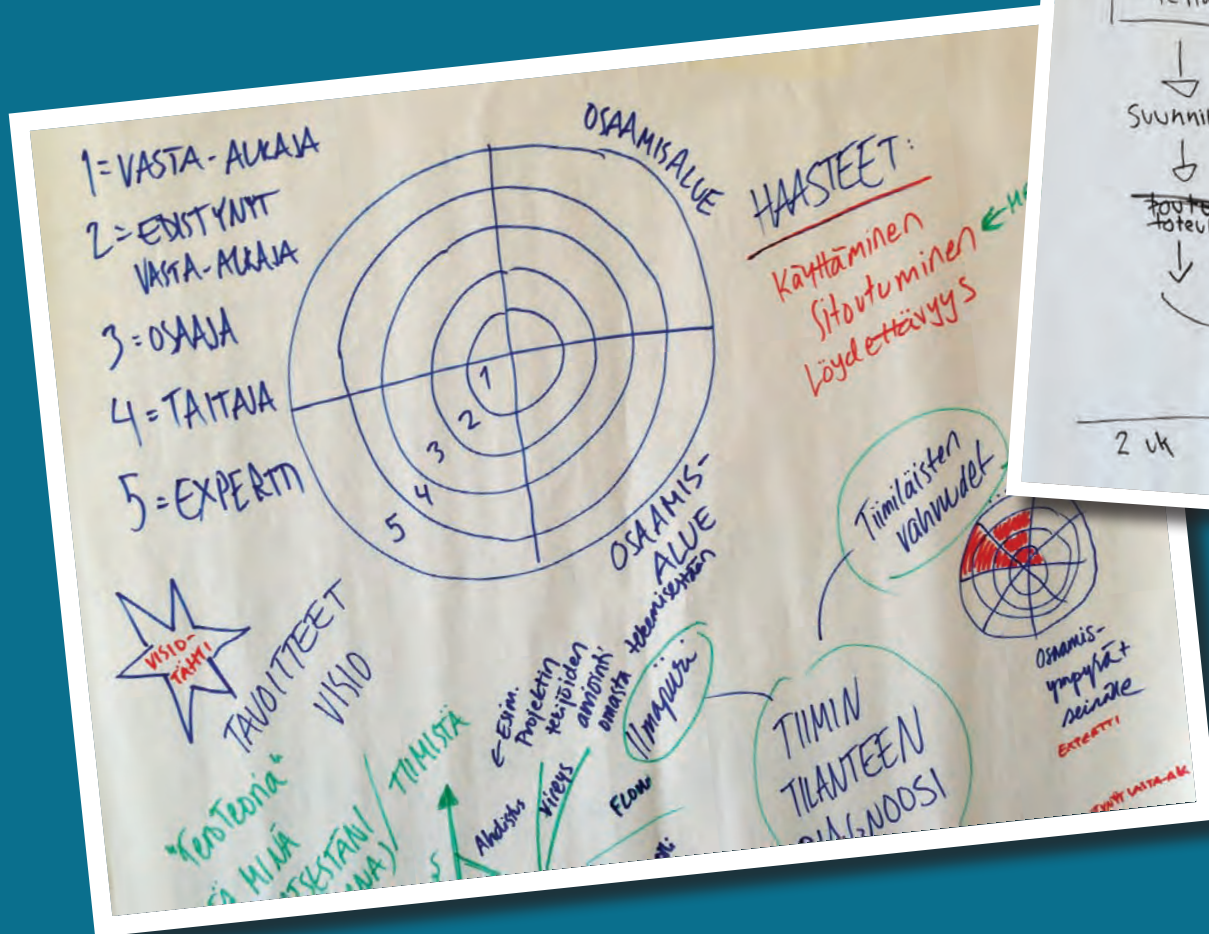 1= VASTA-ALKAJA
2= EDISTYNYT
VASTA-ALKAJA
3= OSAAJA
4= TAITAJA
5= EXPERTTI
OSAAMISALUE
1
2
3
4
5
OSAAMIS-
ALUE
HAASTEET:
Käyttäminen
Sitoutuminen
Löydettävyys
VISIO-
TÄHTI
TAVOITTEET
VISIO
"TeroTeoria"
MINÄ
ITSESTÄNI
TIIMISTÄ
← Esim.
Projektin
tekijöiden
arviointi
omasta
tekemisestään
Ahdistus
Vireys
FLOW
Ilmapiiri
Tiimiläisten
vahvuudet
TIIMIN
TILANTEEN
DIAGNOOSI
Osaamis-
ympyrät
seinälle
EXPERTTI
VASTA-ALK
2 vk